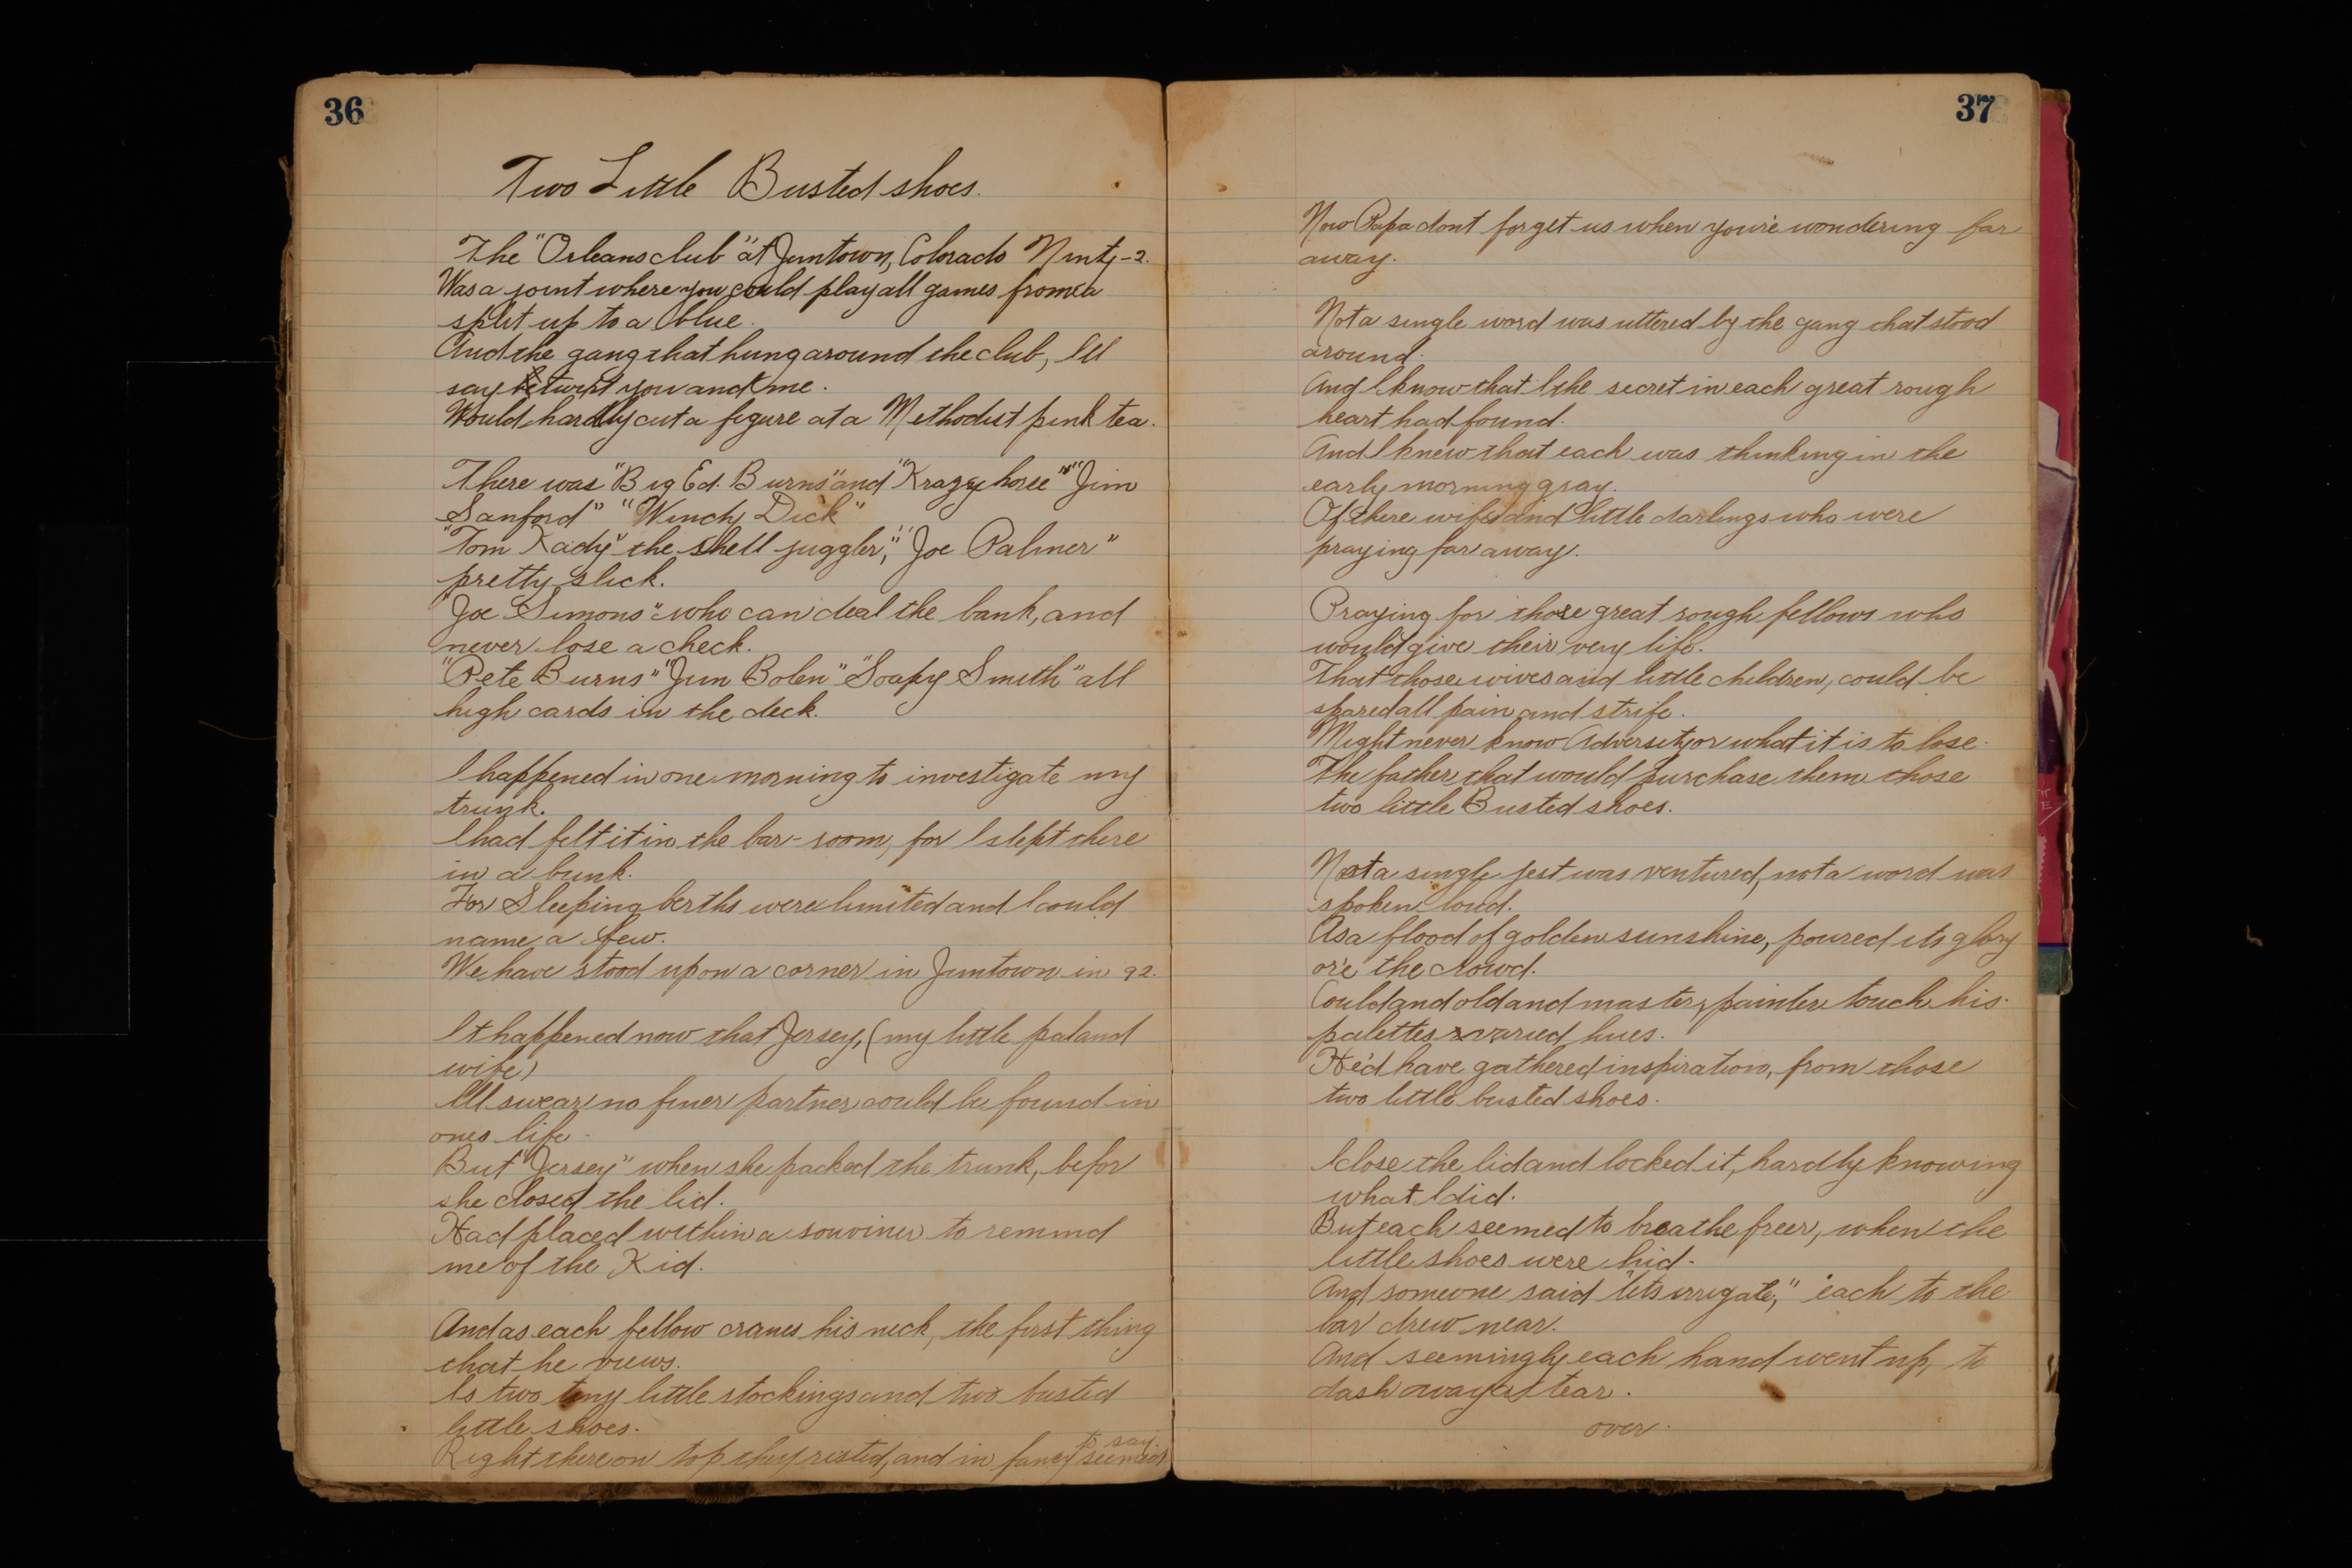 36
Two Little Busted shoes.
The "Orleans club" at Jimtown, Colorado Ninty-2.
Was a joint where you could play all games from a
split up to a blue.
And the gang that hung around the club, Ill
say betwixt you and me.
Would hardly cut a figure at a Methodist pink tea.
There was "Big Ed. Burns" and "Krazy horse" "Jim
Sanford" "Windy Dick"
"Tom Kady" the shell juggler," "Joe Palmer"
pretty slick.
"Joe Simons" who can deal the bank, and
never lose a check.
"Pete Burns" "Jim Bolen" "Soapy Smith" all
high cards in the deck.
I happened in one morning to investigate my
trunk.
I had felt it in the bar-room, for I slept there
in a bunk.
For Sleeping berths were limited and I could
name a few.
We have stood upon a corner in Jimtown in 92.
It happened now that Jersey, (my little pal and
wife)
Ill swear no finer partner could be found in
ones life.
But "Jersey" when she packed the trunk, befor
she closed the lid.
Had placed within a souviner to remind
me of the Kid.
And as each fellow cranes his neck, the first thing
that he views.
Is two tiny little stockings and two busted
little shoes.
Right there on top they risted, and in fancy seemed
to say.
37
Now Papa dont forget us when you're wondering far
away.
Not a single word was uttered by the gang that stood
around.
And I know that I the secret in each great rough
heart had found.
And I knew that each was thinking in the
early morning gray.
Of there wifes and little darlings who were
praying far away.
Praying for those great rough fellows who
would give their very life.
That those wives and little children, could be
spared all pain and strife.
Might never know Adversity or what it is to lose.
The father that would purchase them those
two little Busted shoes.
Not a single jest was ventured, not a word was
spoken loud.
As a flood of golden sunshine, poured its glory
or'e the crowd.
Could and old and master, painter touch his
palettes varied hues.
He'd have gathered inspiration, from those
two little busted shoes.
I close the lid and locked it, hardly knowing
what I did.
But each seemed to breathe freer, when the
little shoes were hid.
And someone said "lets irrigate," each to the
bar drew near.
And seemingly each hand went up, to
dash away a tear.
over.